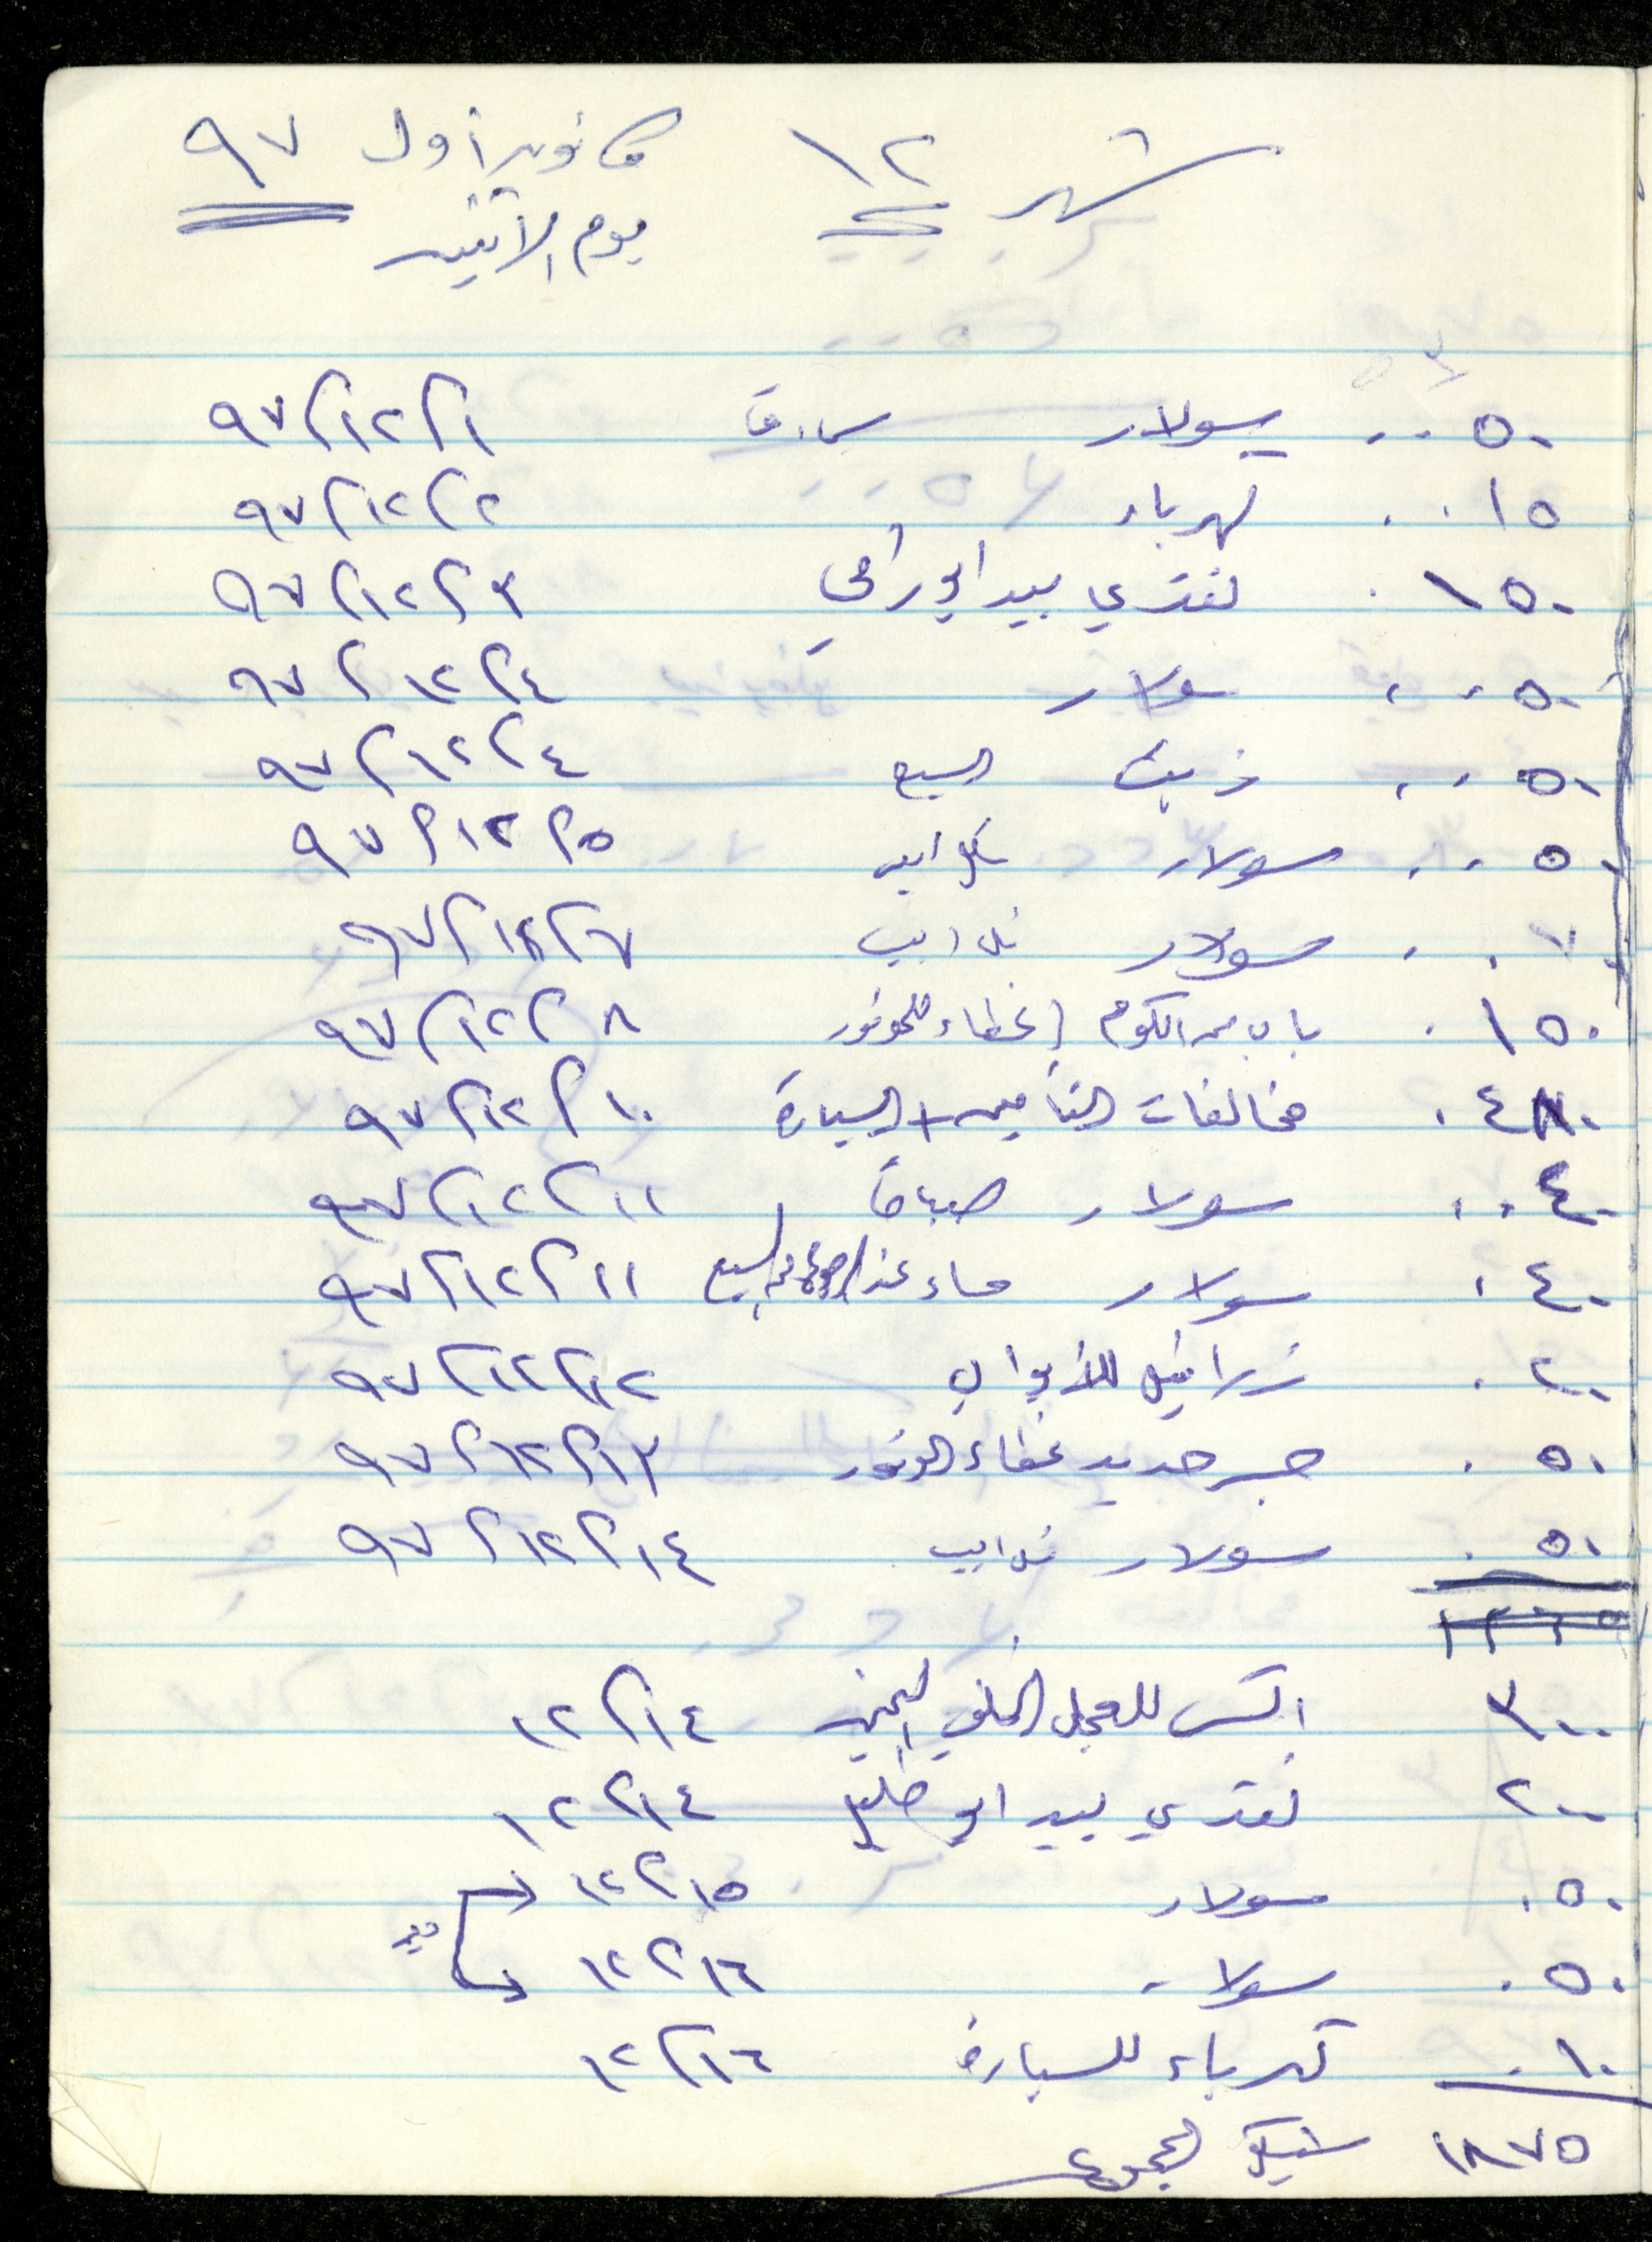 شهر ١٢ كانون أول ٩٧
يوم الاثنين
٥٠ سولار ٩٧/١٢/١
١٥ كهرباء ٩٧/١٢/٢
١٥٠ نقدي بيد ابو رامي ٩٧/١٢/٣
٥٠ سولار ٩٧/١٢/٤
٥٠ زيت السبع ٩٧/١٢/٤
٥٠ سولار ٩٧/١٢/٥
٧٠ سولار ٩٧/١٢/٧
١٥٠ باب من الكوم (غطاء للموتور ٩٧/١٢/٨
٤٨٠ مخالفات التأمين + السيارة ٩٧/١٢/١٠
٤٠ سولار صباحاً ٩٧/١٢/١١
٤٠ سولار مساء عند السبع ٩٧/١٢/١١
٢٠ زرافيل للأبواب ٩٧/١٢/١٢
٥٠ جسر حديد غطاء الموتور ٩٧/١٢/١٣
٥٠ سولار ٩٧/١٢/١٤
١٢٦٥
٣٠٠ اكس للعجل الخلفي اليمين ١٢/١٤
٢٠٠ نقدي بيد ابو خليل ١٢/١٤
٥٠ سولار ١٢/١٥
٥٠ سولار ١٢/١٦
١٠ كهرباء للسيارة ١٢/١٦
١٨٧٥ شيكل المجموع